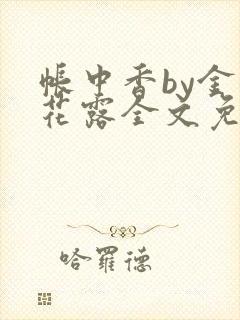 帐中香by金
花露全文免
哈羅德